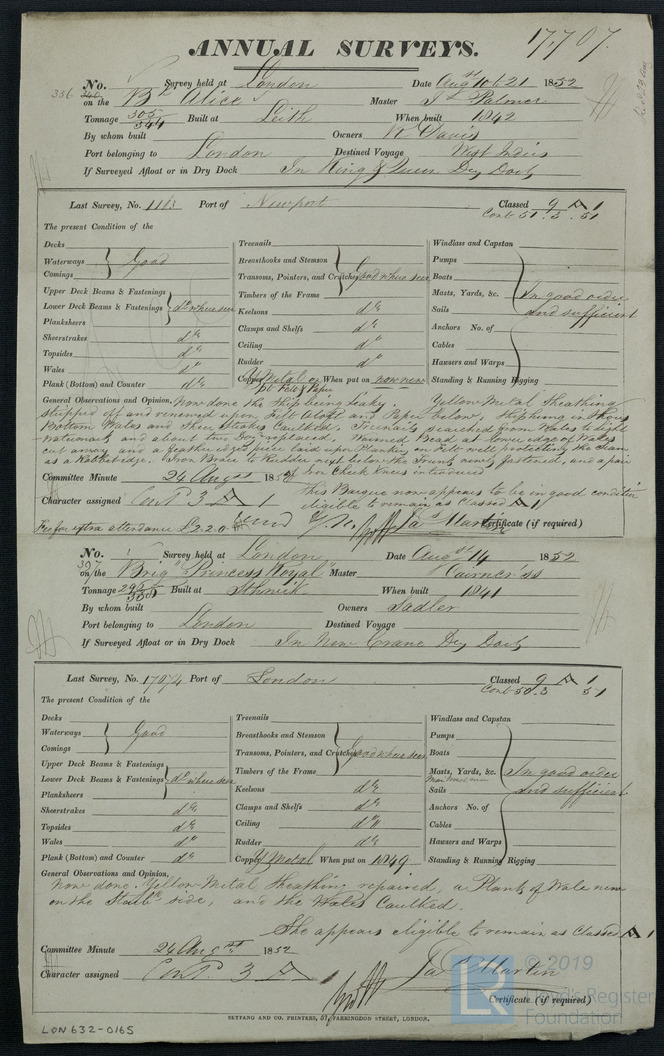 17,707
ANNUAL SURVEYS.
No. Survey held at London Date Augst 10 & 21 1852
336 340 on the Bk Alice Master Js Palmer
Tonnage 305/344 Built at Leith When built 1842
By whom built Owners W Davis
Port belonging to London Destined Voyage West Indies
If Surveyed Afloat or in Dry Dock In King & Queen Dry Dock
Last Survey, No. 1113 Port of Newport Classed 9 A 1
Contd 51. 3. 51
The present Condition of the
Decks
Waterways Good
Comings
Upper Deck Beams & Fastenings
Lower Deck Beams & Fastenings do where seen
Planksheers
Sheerstrakes do
Topsides do
Wales do
Plank (Bottom) and Counter do
Treenails
Breasthooks and Stemson
Transoms, Pointers, and Crutches Good where seen
Timbers of the Frame
Keelsons do
Clamps and Shelfs do
Ceiling do
Rudder do
Copper Y Metal on When put on now new
Felt & Paper
Windlass and Capstan
Pumps
Boats
Masts, Yards, &c. In good order
Sails and sufficient
Anchors No. of
Cables
Hawsers and Warps
Standing & Running Rigging
General Observations and Opinion, Now done the Ship being leaky. Yellow Metal Sheathing
stripped off and renewed upon Felt aloft and Paper below,
Bottom Wales and Strakes Caulked. Treenails searched from Wales to light
Watermark and about two Doz replaced. Bead at lower edge of Wales
cut away and a feather edged piece laid upon Planking on Felt well protecting the Seam
as a Rabbetedge. Iron Brace to Rudder next below the newly fastened, and a pair
of Iron Cheek Knees introduced
Committee Minute 24 Augst 1852
This Barque now appears to be in good condition
eligible to remain as Classed A 1
Character assigned Contd 3 A 1
Fee for extra attendance £2.2.0 Js Martin Certificate (if required)
No. Survey held at London Date Augst 14 1852
397 on the Brig "Princess Royal" Master Cairncross
Tonnage Built at When built 1841
By whom built Owners Sadler
Port belonging to London Destined Voyage
If Surveyed Afloat or in Dry Dock In New Crane Dry Dock
Last Survey, No. 17074 Port of London Classed 9 A 1
Contd 50.3 51
The present Condition of the
Decks
Waterways Good
Comings
Upper Deck Beams & Fastenings
Lower Deck Beams & Fastenings do where seen
Planksheers
Sheerstrakes do
Topsides do
Wales do
Plank (Bottom) and Counter do
Treenails
Breasthooks and Stemson
Transoms, Pointers, and Crutches Good where seen
Timbers of the Frame
Keelsons do
Clamps and Shelfs do
Ceiling do
Rudder do
Copper Y Metal When put on 1849
Windlass and Capstan
Pumps
Boats
Masts, Yards, &c. In good order
Sails and sufficient
Anchors No. of
Cables
Hawsers and Warps
Standing & Running Rigging
General Observations and Opinion,
Now done. Yellow Metal Sheathing repaired, a Plank of Wale new
on the Starbd side, and the Wales Caulked.
She appears eligible to remain as Classed A 1
Committee Minute 24 Augst 1852
Character assigned Contd 3 A 1
Js Martin
Certificate (if required)
SEYFANG AND CO. PRINTERS, 57, FARRINGDON STREET, LONDON.
LON 632-0165
LR © 2019
Lloyd's Register
Foundation